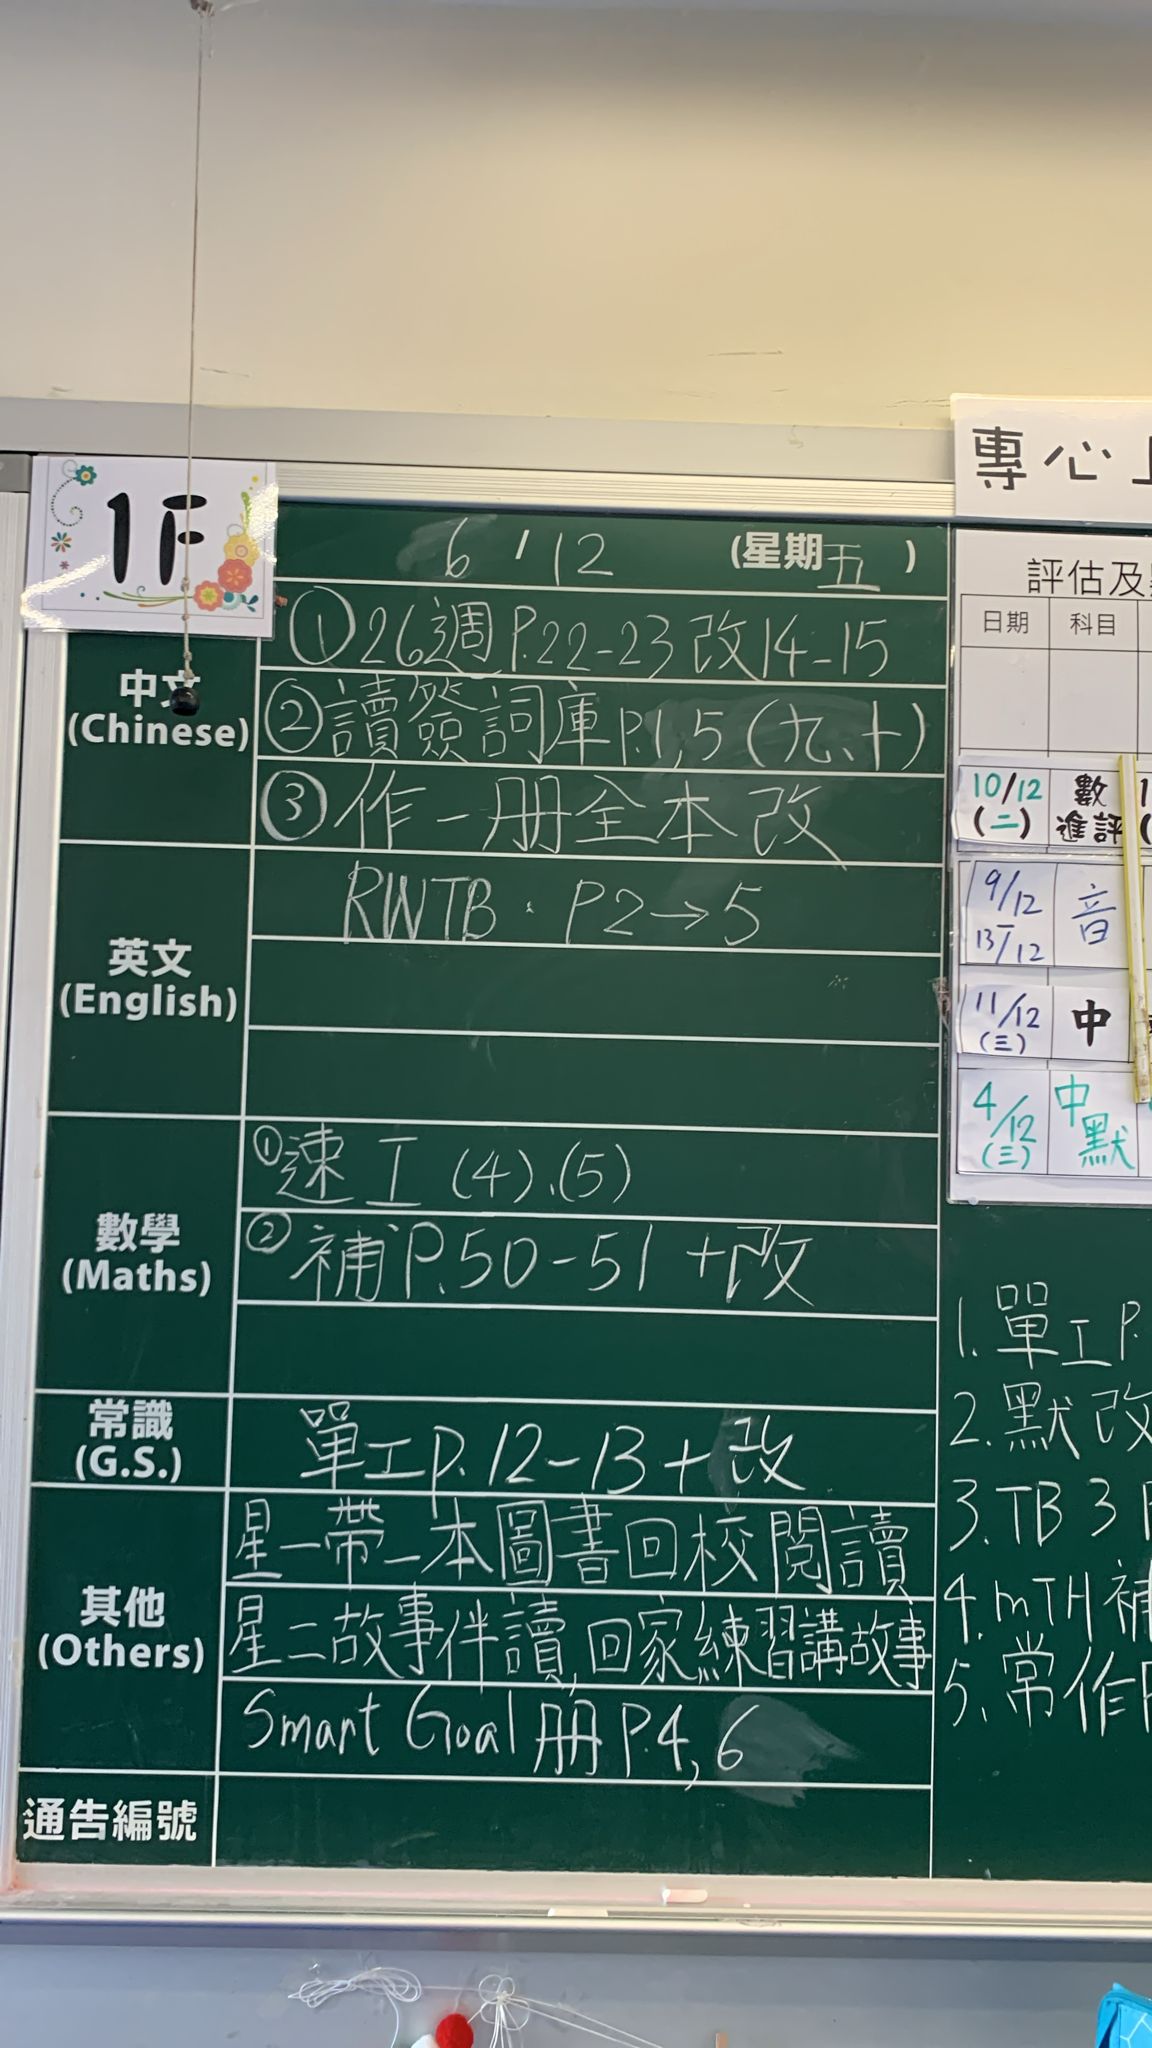 1F
6 / 12 (星期五)
中文
(Chinese)
①26週 P.22-23 改14-15
②讀簽詞庫P.1,5 (九、十)
③作一册全本改
英文
(English)
RWTB · P2→5
數學
(Maths)
①速工 (4)、(5)
②補P.50-51 +改
常識
(G.S.)
單工p.12-13+改
其他
(Others)
星一帶一本圖書回校閱讀
星二故事伴讀,回家練習講故事
Smart Goal 册 P.4,6
通告編號
專心
評估及
日期 科目
10/12
(二)
數
進評
9/12
13/12
音
11/12
(三)
中
4/12
(三)
中
默
1. 單工P.
2. 默改
3. TB 3
4. mTH補
5. 常作